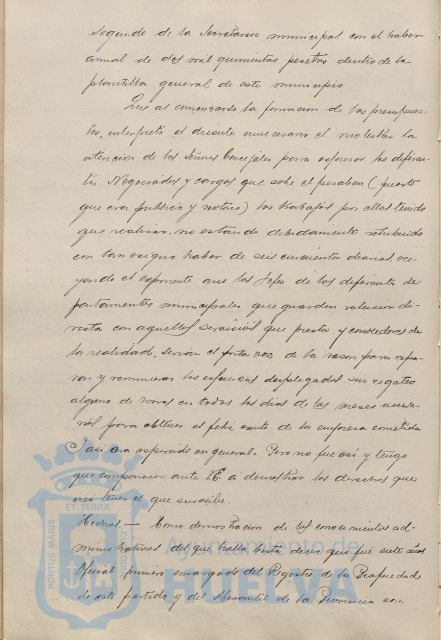 segundo de la Secretaria municipal con el haber
anual de dos mil quinientas pesetas dentro de la
plantilla general de este municipio
Que al comenzarse la formacion de los presupues-
tos, interpretó el dicente innecesario el molestar la
atencion de los Señores Concejales para expresar los diferen-
tes Negociados y cargos que sobre el pesaban (puesto
que era publico y notorio) los trabajos por ellos tenido
que realizar no estando debidamente retribuido
con tan exiguo haber de seis cincuenta diarias, cre-
yendo el exponente que los Jefes de los diferentes de-
partamentos municipales que guardan relacion di-
recta con aquellos servicios que presta, y conocedores de
la realidad, serian el porta voz de la razon para expo-
ner y remunerar los esfuerzos desplegados sin regateo
alguno de horas en todos los dias de los meses necesa-
rios para obtener el feliz exito de la empresa cometida
I así era esperado en general. Pero no fue así y tengo
que comparecer ante VE á demostrar los derechos que
creo tener el que suscribe.
Hechos — Como demostracion de los conocimientos ad-
ministrativos del que habla basta decir que fué siete años
Oficial primero encargado del Registro de la Propiedad
de este partido y del Mercantil de la Provincia con
PORTUS MARIS
ET TERRÆ
CUSTODIA
Ayuntamiento de
HUELVA